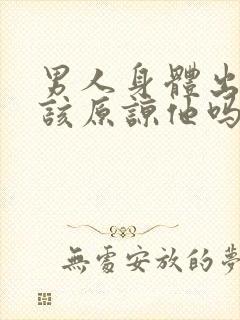 男人身體出
該原諒他嗎
無處安放的夢